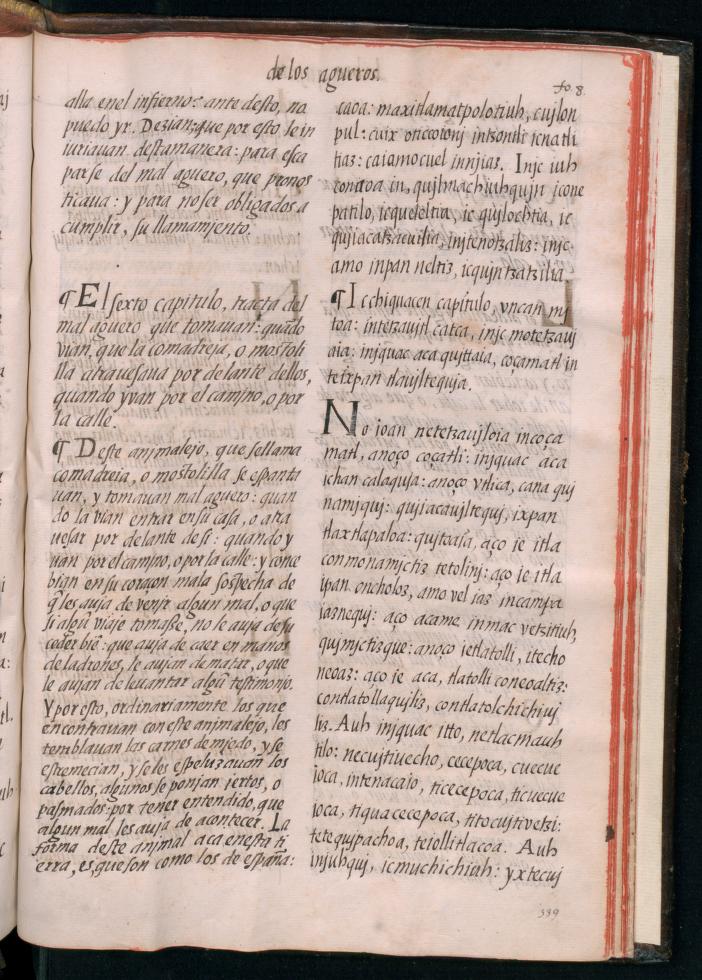 de los agueros.
fo. 8.
alla enel infierno: ante desto, no
puedo yr. Dezian: que por esto le in
iuriauan destamanera: para esca
parse del mal aguero, que pronos
ticaua: y para no ser obligados a
cumplir, su llamamjento.
¶ El sexto capitulo, tracta del
mal aguero que tomauan: quãdo
vian, que la comadreja, o mostoli
lla atrauesaua por delante dellos,
quando yvan por el camjno, o por
la calle.
¶ Deste anjmalejo, que se llama
comadreia, o mostolilla se espanta
uan, y tomauan mal aguero: quan
do la vian entrar en su casa, o atra
uesar por delante de si: quando y
uan por el camjno, o por la calle: y conce
bian en su coraçon mala sospecha de
q̃ les auja de venjr algun mal, o que
si algũ viaje tomasse, no le auja de su
ceder biẽ: que auja de caer en manos
de ladrones, le aujan de matar, o que
le aujan de leuantar algũ testimonjo.
Y por esto, ordinariamente los que
encontrauan con este anjmalejo, les
temblauan las carnes de mjedo, y se
estremecian, y se les espeluzauan los
cabellos, algunos se ponjan iertos, o
pasmados: por tener entendido, que
algun mal les auja de acontecer. La
forma deste anjmal aca enesta ti
erra, es, que son como los de españa:
caoa: maxitlamatpolotiuh, cujlon
pul: cuix oticcotonj intzontli icnatli
tiaz: caiamocuel innjiaz. Injc iuh
conitoa in, qujhnachiuhqujn icone
patilo, icqueleltia, ic qujlochtia, ic
qujiacatzacuilia, injtenotzaliz: injc
amo inpan neltiz, icqujntzatzilia
¶ Ic chiquacen capitulo, vncan mj
toa: intetzaujtl catca, injc motetzauj
aia: injquac aca qujttaia, coçamatl in
teixpan tlaujlteq
uja.
No ioan netetzaujloia incoça
matl, anoço coçatli: injquac aca
ichan calaquja: anoço vtlica, cana quj
namjquj: qujiacaujltequj, ixpan
tlaxtlapaloa: qujtoaia, aço ie itla
conmonamjctiz tetolinj: aço ie itla
ipan oncholoz, amo vel iaz incampa
iaznequj: aço acame inmac vetzitiuh,
qujmjctizque: anoço ietlatolli, itecho
neoaz: aço ie aca, tlatolli coneoaltiz:
contlatollaqujliz, contlatolchichiuj
liz. Auh injquac itto, netlacmauh
tilo: necujtiuecho, cecepoca, cuecue
ioca, intenacaio, ticecepoca, ticuecue
ioca, tiquacecepoca, titocujtivetzi:
tetequjpachoa, teiollitlacoa. Auh
injuhquj, icmuchichioah: yxtecuj
339